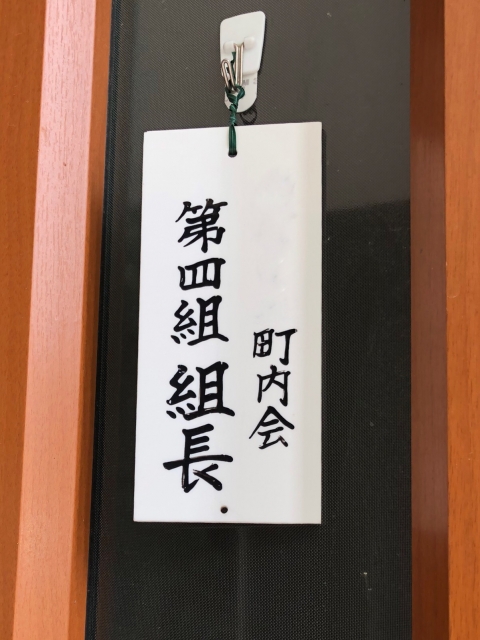 町内会
第四組 組長